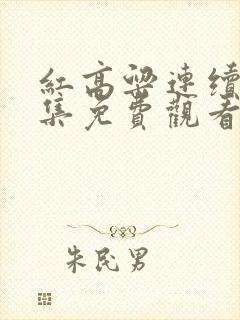 紅高粱連續
集免費觀看
朱民男